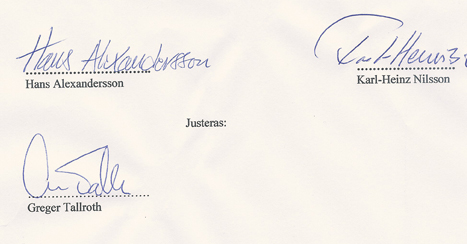 Hans Alexandersson
Hans Alexandersson
Karl-Heinz Nilsson
Justeras:
Greger Tallroth